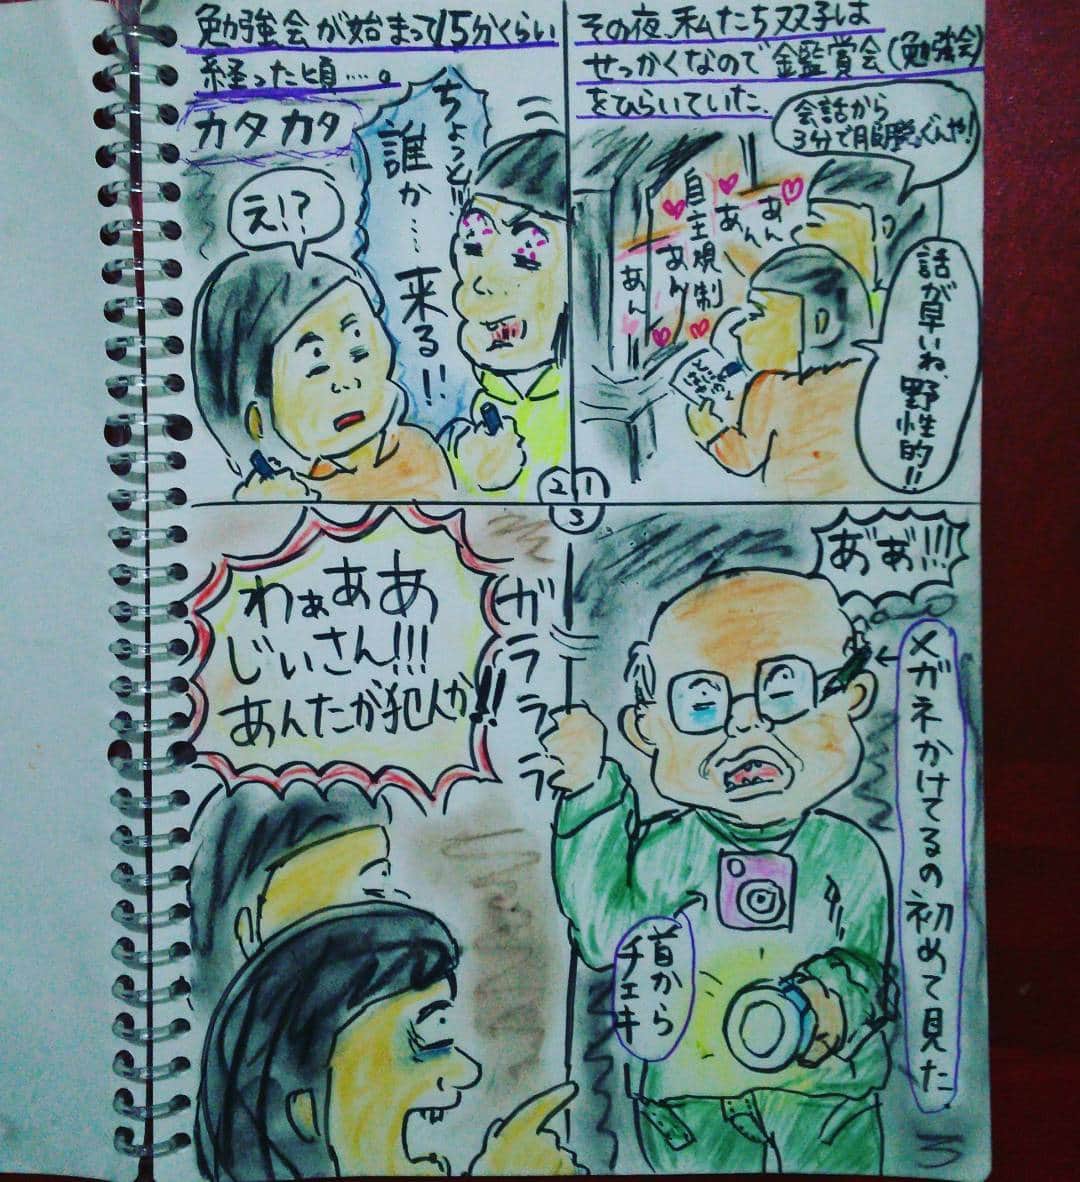 その夜、私たち双子は
せっかくなので金鑑賞会(勉強会)
をひらいていた。
会話から
3分で服脱ぐんや!
あん
あんん
自主規制
あんん
あん
話が早いね、
野性的!!
1
勉強会が始まって15分くらい
経った頃…。
カタカタ
ちょっと!!
誰か……
来る!!
え!?
2
3
あ゛あ゛!!!
メガネかけてるの初めて見た
ガラララララ
首から
チェキ
わぁああ
じいさん!!!
あんたが犯人か!!
3